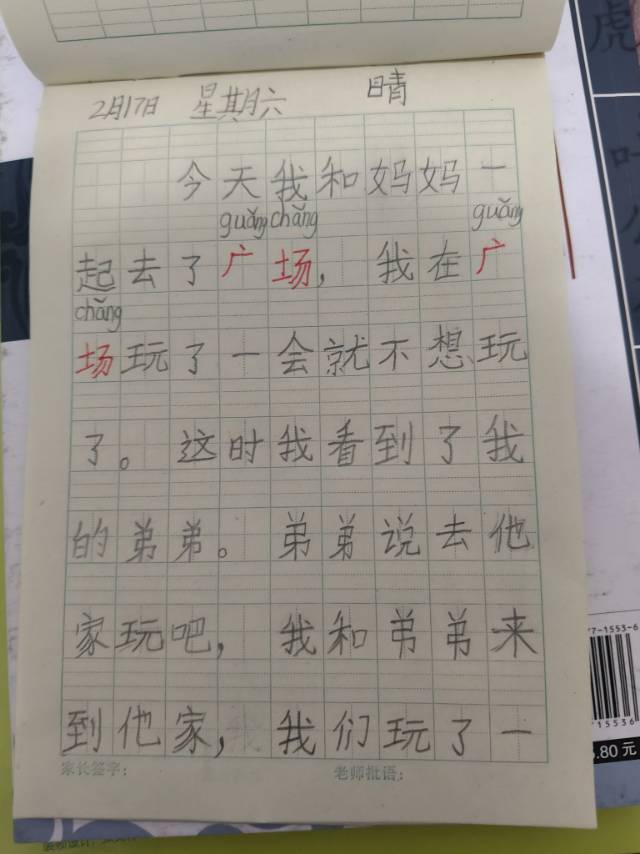 2月17日 星期六 晴
今天我和妈妈一
guǎng chǎng guǎng
起去了广场，我在广
chǎng
场玩了一会就不想玩
了。这时我看到了我
的弟弟。弟弟说去他
家玩吧，我和弟弟来
到他家，我们玩了一
家长签字： 老师批语：
虎
7-1553-6
15536
.80元